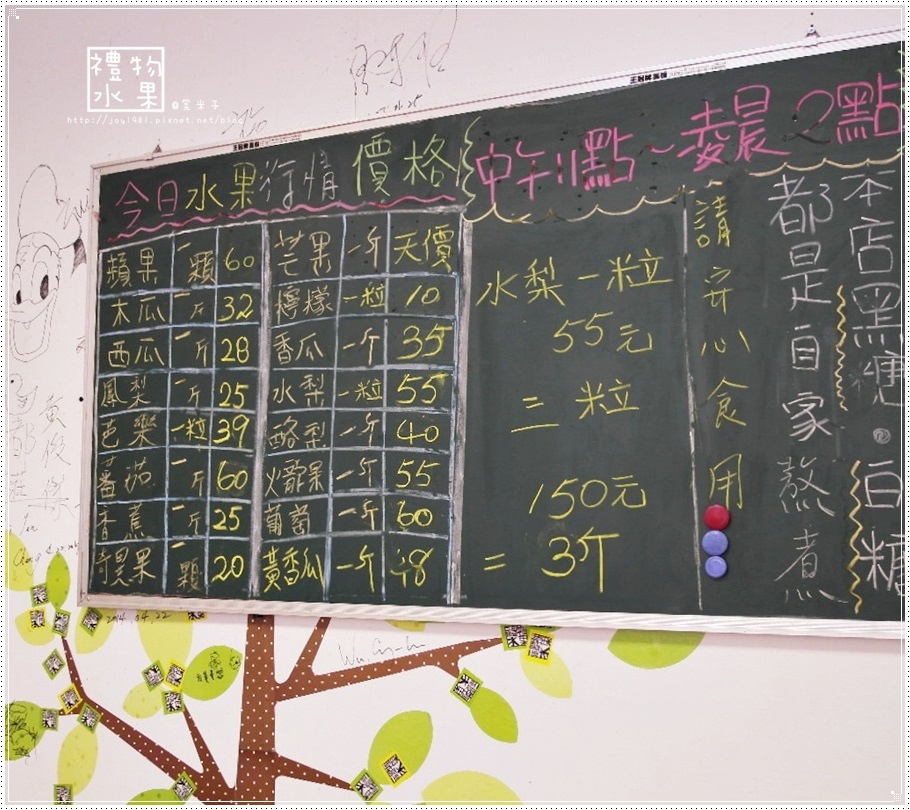 禮物
水果
@笑米子
http://joy1481.pixnet.net/blog
王冠牌黑板
王冠牌黑板
今日水果行情價格
中午11點~凌晨2點
蘋果 一顆 60 芒果 一斤 天價
木瓜 一斤 32 檸檬 一粒 10
西瓜 一斤 28 香瓜 一斤 35
鳳梨 一斤 25 水梨 一粒 55
芭樂 一粒 39 酪梨 一斤 40
蕃茄 一斤 60 火龍果 一斤 55
香蕉 一斤 25 葡萄 一斤 60
奇異果 一顆 20 黃香瓜 一斤 48
水梨一粒
55元
三粒
150元
= 3斤
本店黑糖。白糖
都是自家熬煮
請安心食用
黃俊
2014.04.22